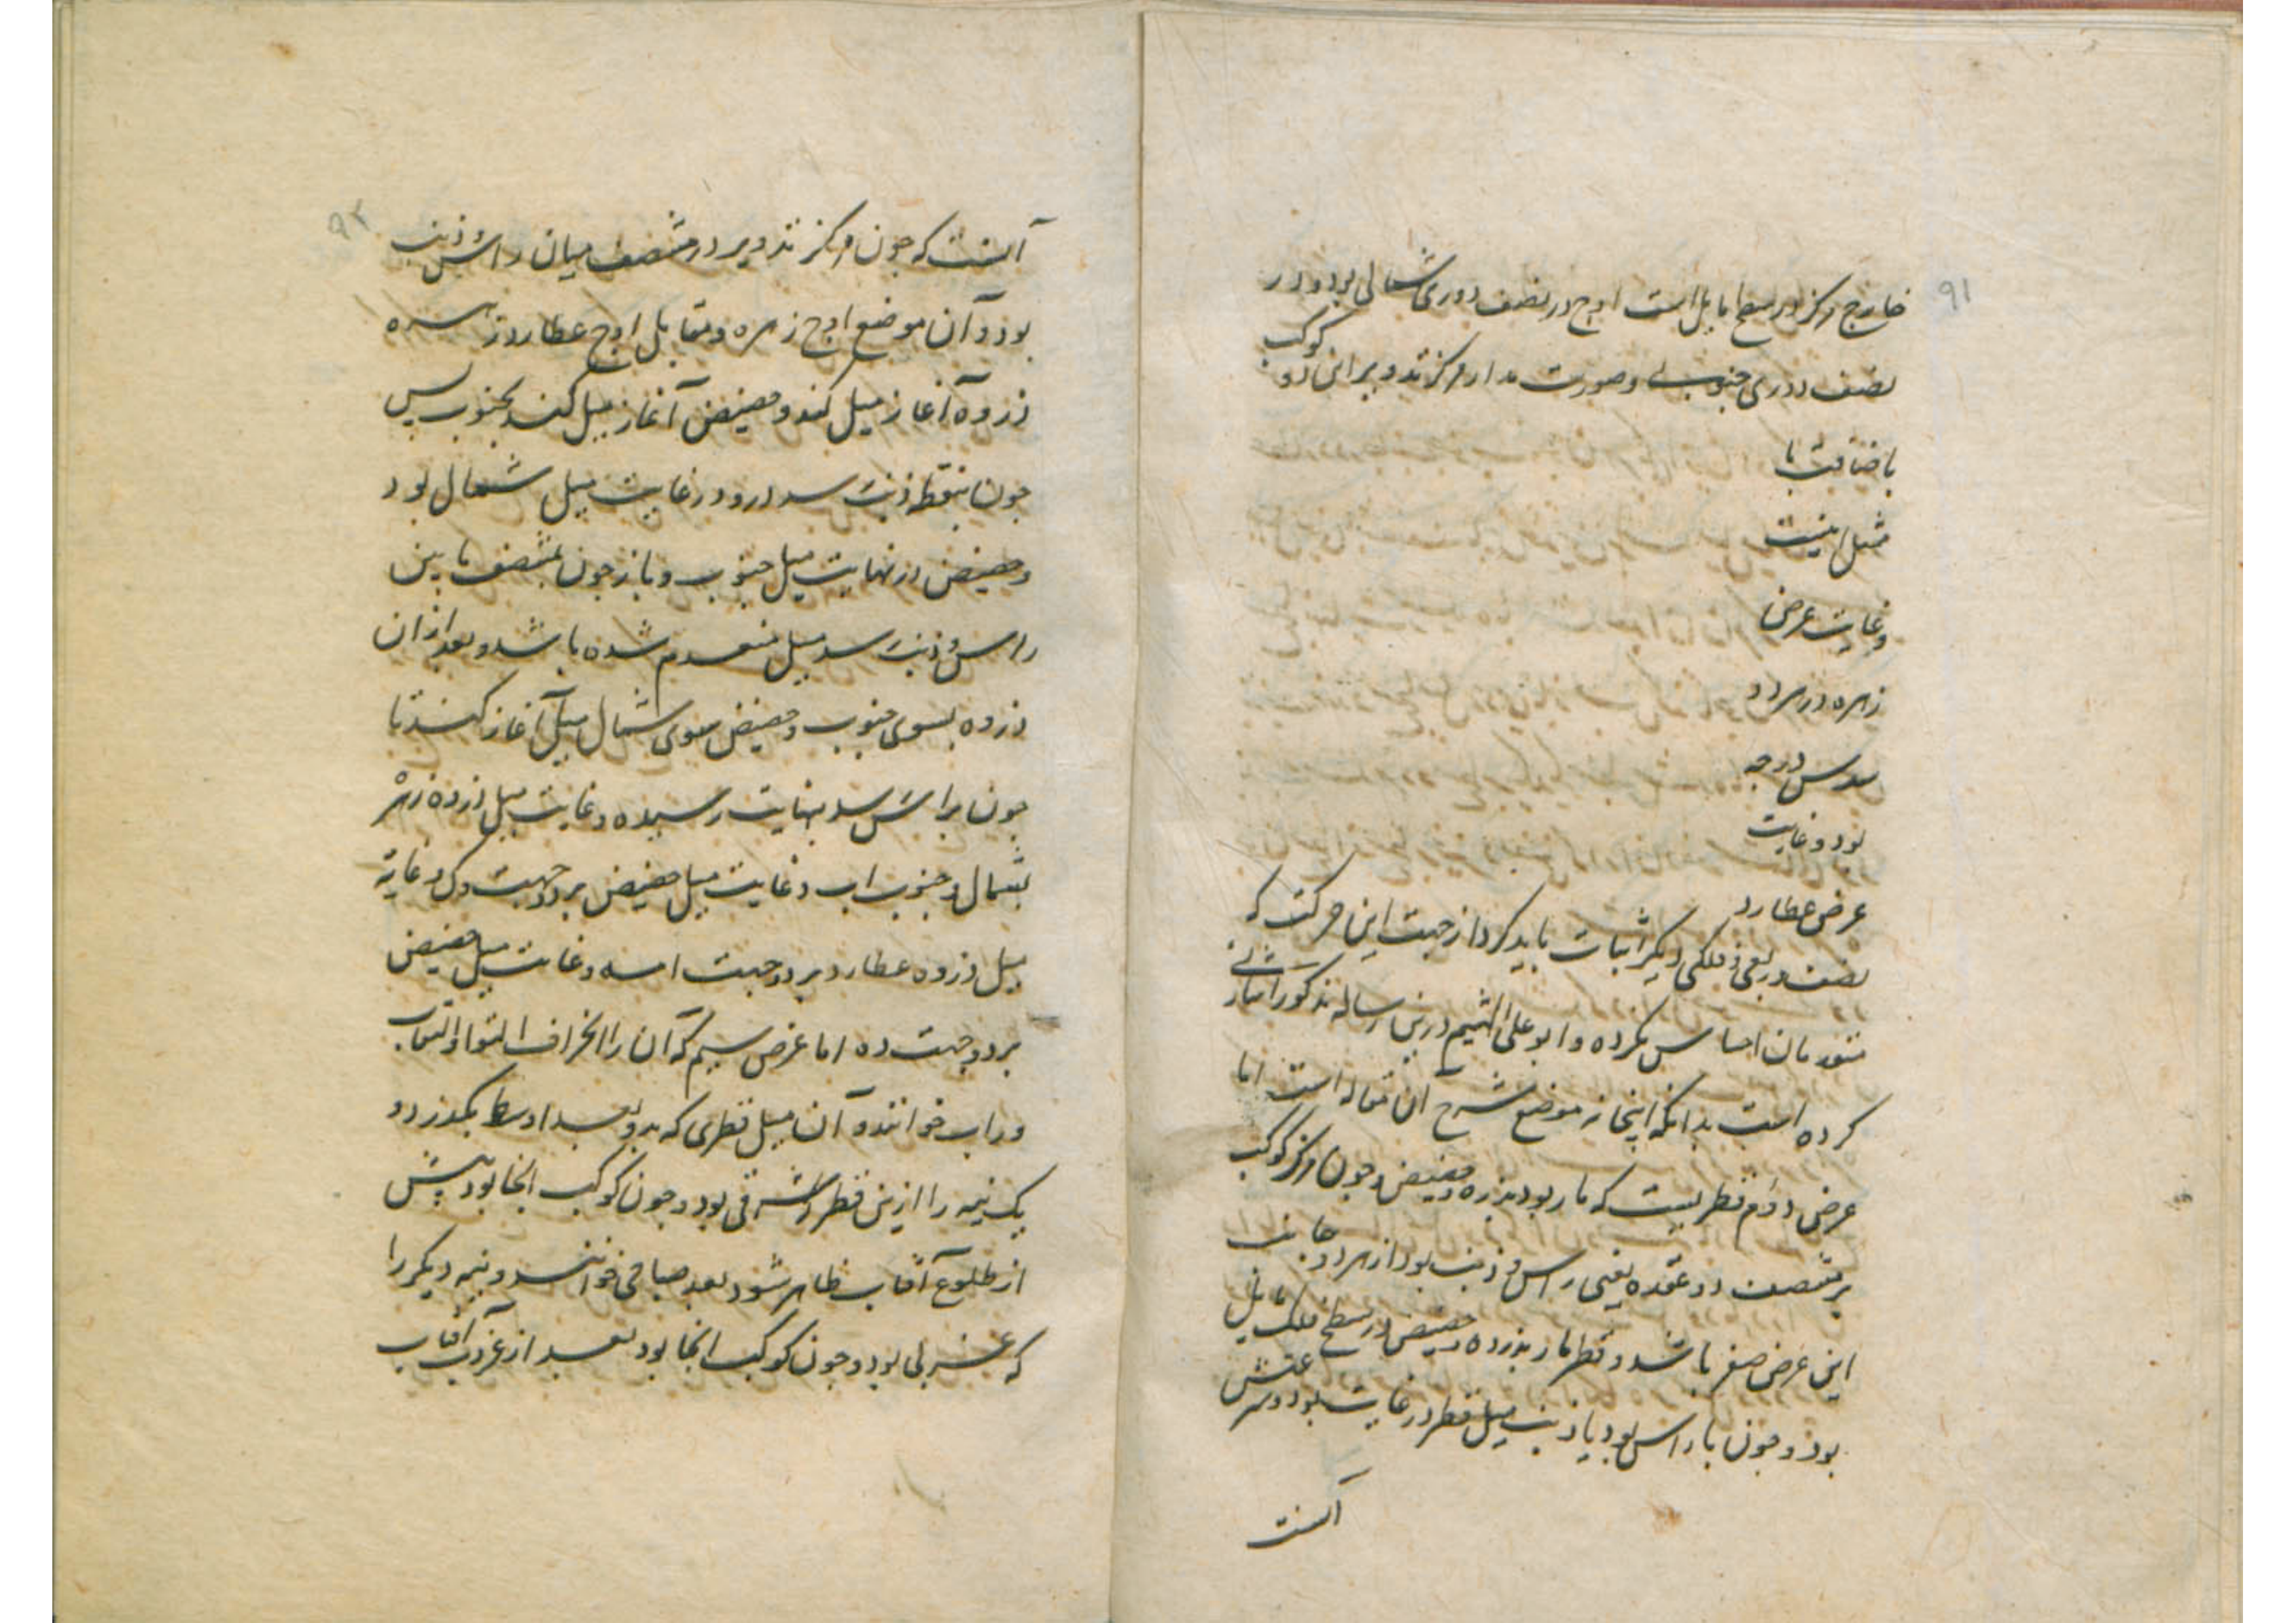 ۹۱
خارج مرکز در سطح مایل است اوج در نصف دوری شمالی بود و در
نصف دوری جنوبی و صورت مدار مرکز تدویر این دو کوکب
باضافت با
مثل اینست
و غایت عرض
زهره در هر دو
سدس درجه
بود و غایت
عرض عطارد
نصف و ربعی و فلکی دیگر اثبات باید کرد از جهت این حرکت که
متقدمان احساس نکرده و ابو علی الهیثم درین رساله مذکور اشارتی
کرده است بدانکه اینجا نه موضع شرح آن مقاله است اما
عرض دوام قطریست که مار بود بذروه و حضیض و چون مرکز کوکب
بر منتصف دو عقده یعنی راس و ذنب بود از هر دو جانب
این عرض صفر باشد و قطر مار بذروه و حضیض در سطح فلک مایل
بود و چون با راس بود یا ذنب میل قطر در غایت بود و شرعتش
آنست
۹۲
آنست که جون مرکز تدویر در منتصف میان راس و ذنب
بود و آن موضع اوج زهره و مقابل اوج عطارد زهره
ذروه آغاز میل کند و حضیض آغاز میل کند بجنوب پس
جون بنقطه ذنب رسد ذروه در غایت میل شمال بود
و حضیض در نهایت میل جنوب و باز جون بمنتصف مابین
راس و ذنب رسد میل منعدم شده باشد و بعد از ان
ذروه بسوی جنوب و حضیض بسوی شمال میل آغاز کند تا
جون براس رسد بنهایت رسیده و غایت میل ذروه زهره
بشمال و جنوب اب و غایت میل حضیض بر دو جهت و غایة
میل ذروه عطارد بر دو جهت امه و غایت میل حضیض
بر دو جهت ده اما عرض سیم که آن را انحراف و التوا و التفاف
وراب خوانند و آن میل قطری که بدو بعد اوسط بگذرد و
یک نیمه را ازین قطر شرقی بود و جون کوکب انجا بود پیش
از طلوع آفتاب ظاهر شود بعد صباحی خوانند و نیمه دیگر را
که غربی بود و جون کوکب انجا بود بعد از غروب آفتاب